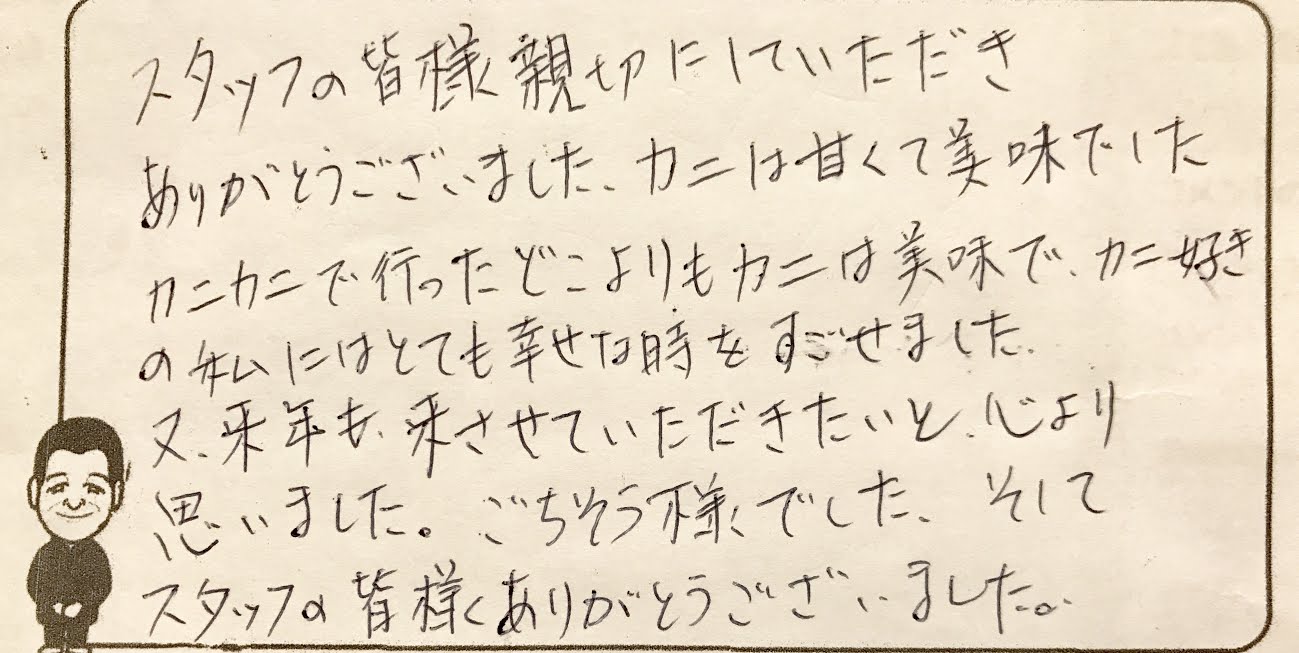 スタッフの皆様親切にしていただき
ありがとうございました、カニは甘くて美味でした
カニカニで行ったどこよりもカニは美味で、カニ好き
の私にはとても幸せな時をすごせました、
又、来年も、来させていただきたいと、心より
思いました。ごちそう様でした、そして
スタッフの皆様ありがとうございました。